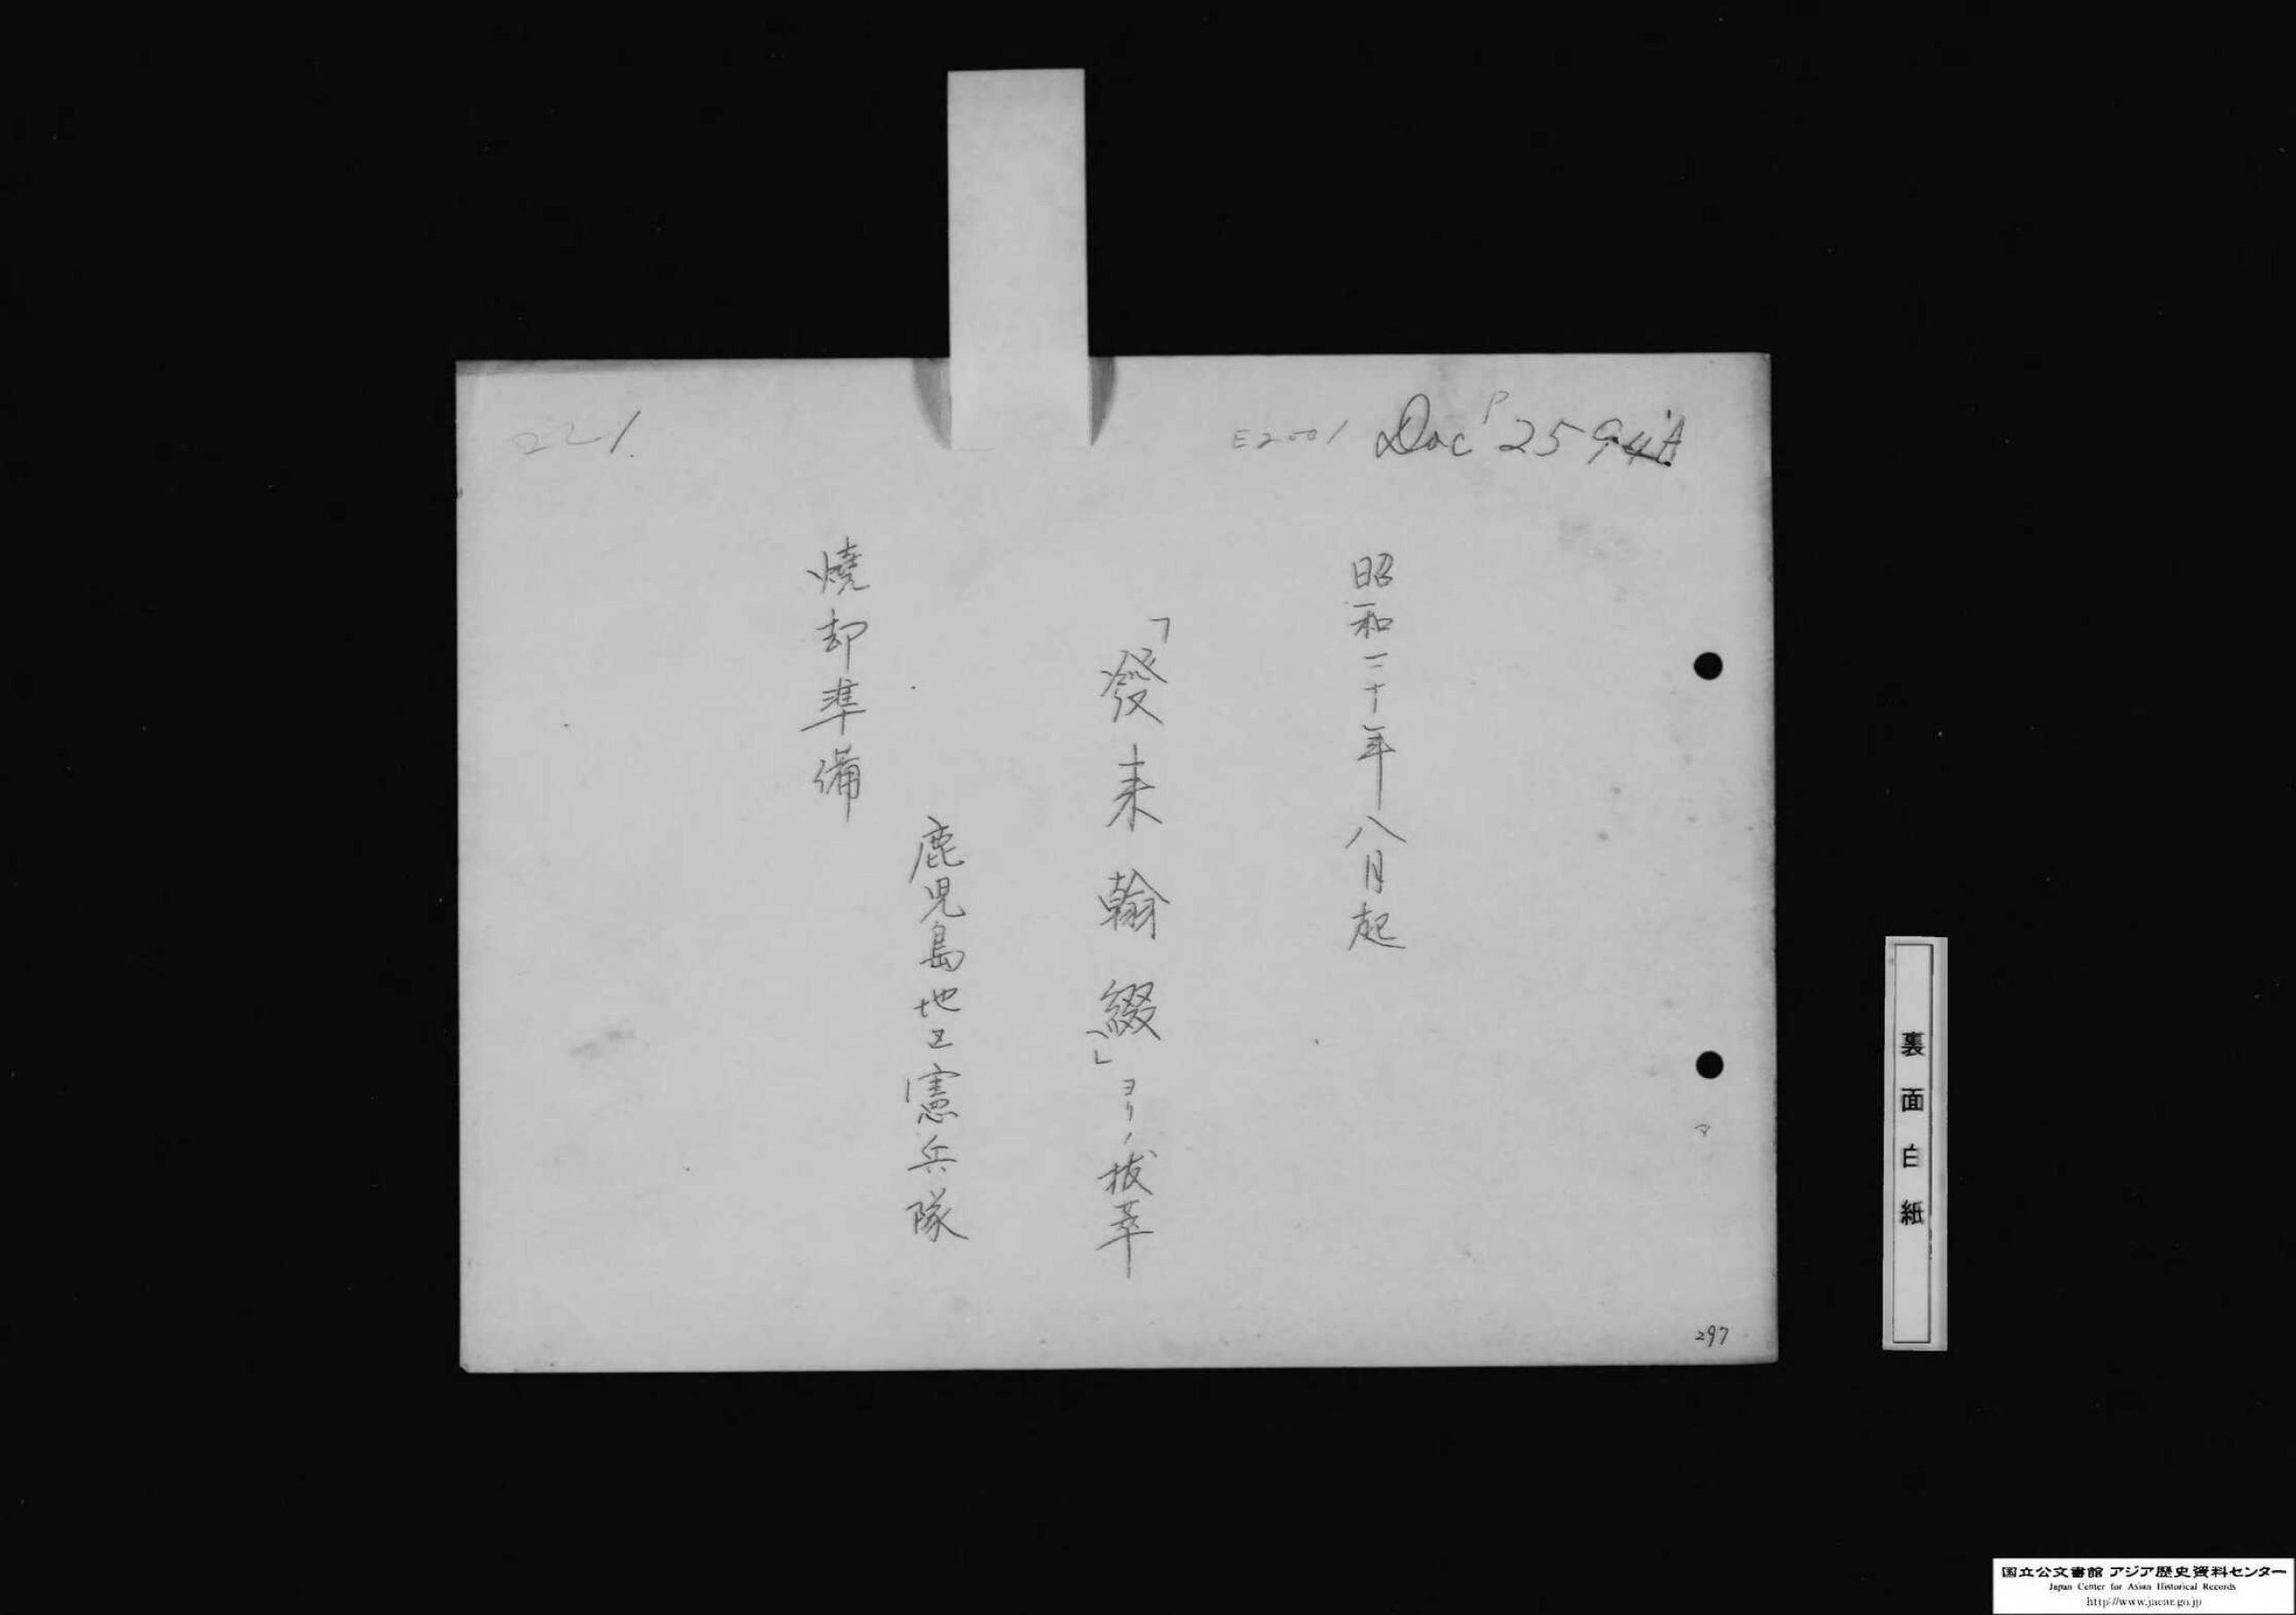 221.
E2001 Doc P 2594A
昭和二十年八月起
「發来翰綴」ヨリノ拔萃
鹿児島地区憲兵隊
燒却準備
マ
297
裏面白紙
国立公文書館 アジア歴史資料センター
Japan Center for Asian Historical Records
http://www.jacar.go.jp